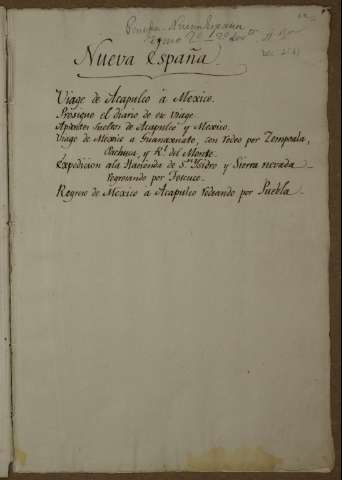 Pineda - Nueva España
Nueva España
Viage de Acapulco à Mexico.
Prosigue el diario de ese viage
Apuntes sueltos de Acapulcò y Mexico.
Viage de Mexico a Guanaxuato, con rodeo por Zempoala,
Pachuca, y Rl. del Monte.
Expedicion a la Hacienda de Sn. Isidro y Sierra nevada
regresando por Tescuco.
Regreso de Mexico a Acapulco rodeando por Puebla.